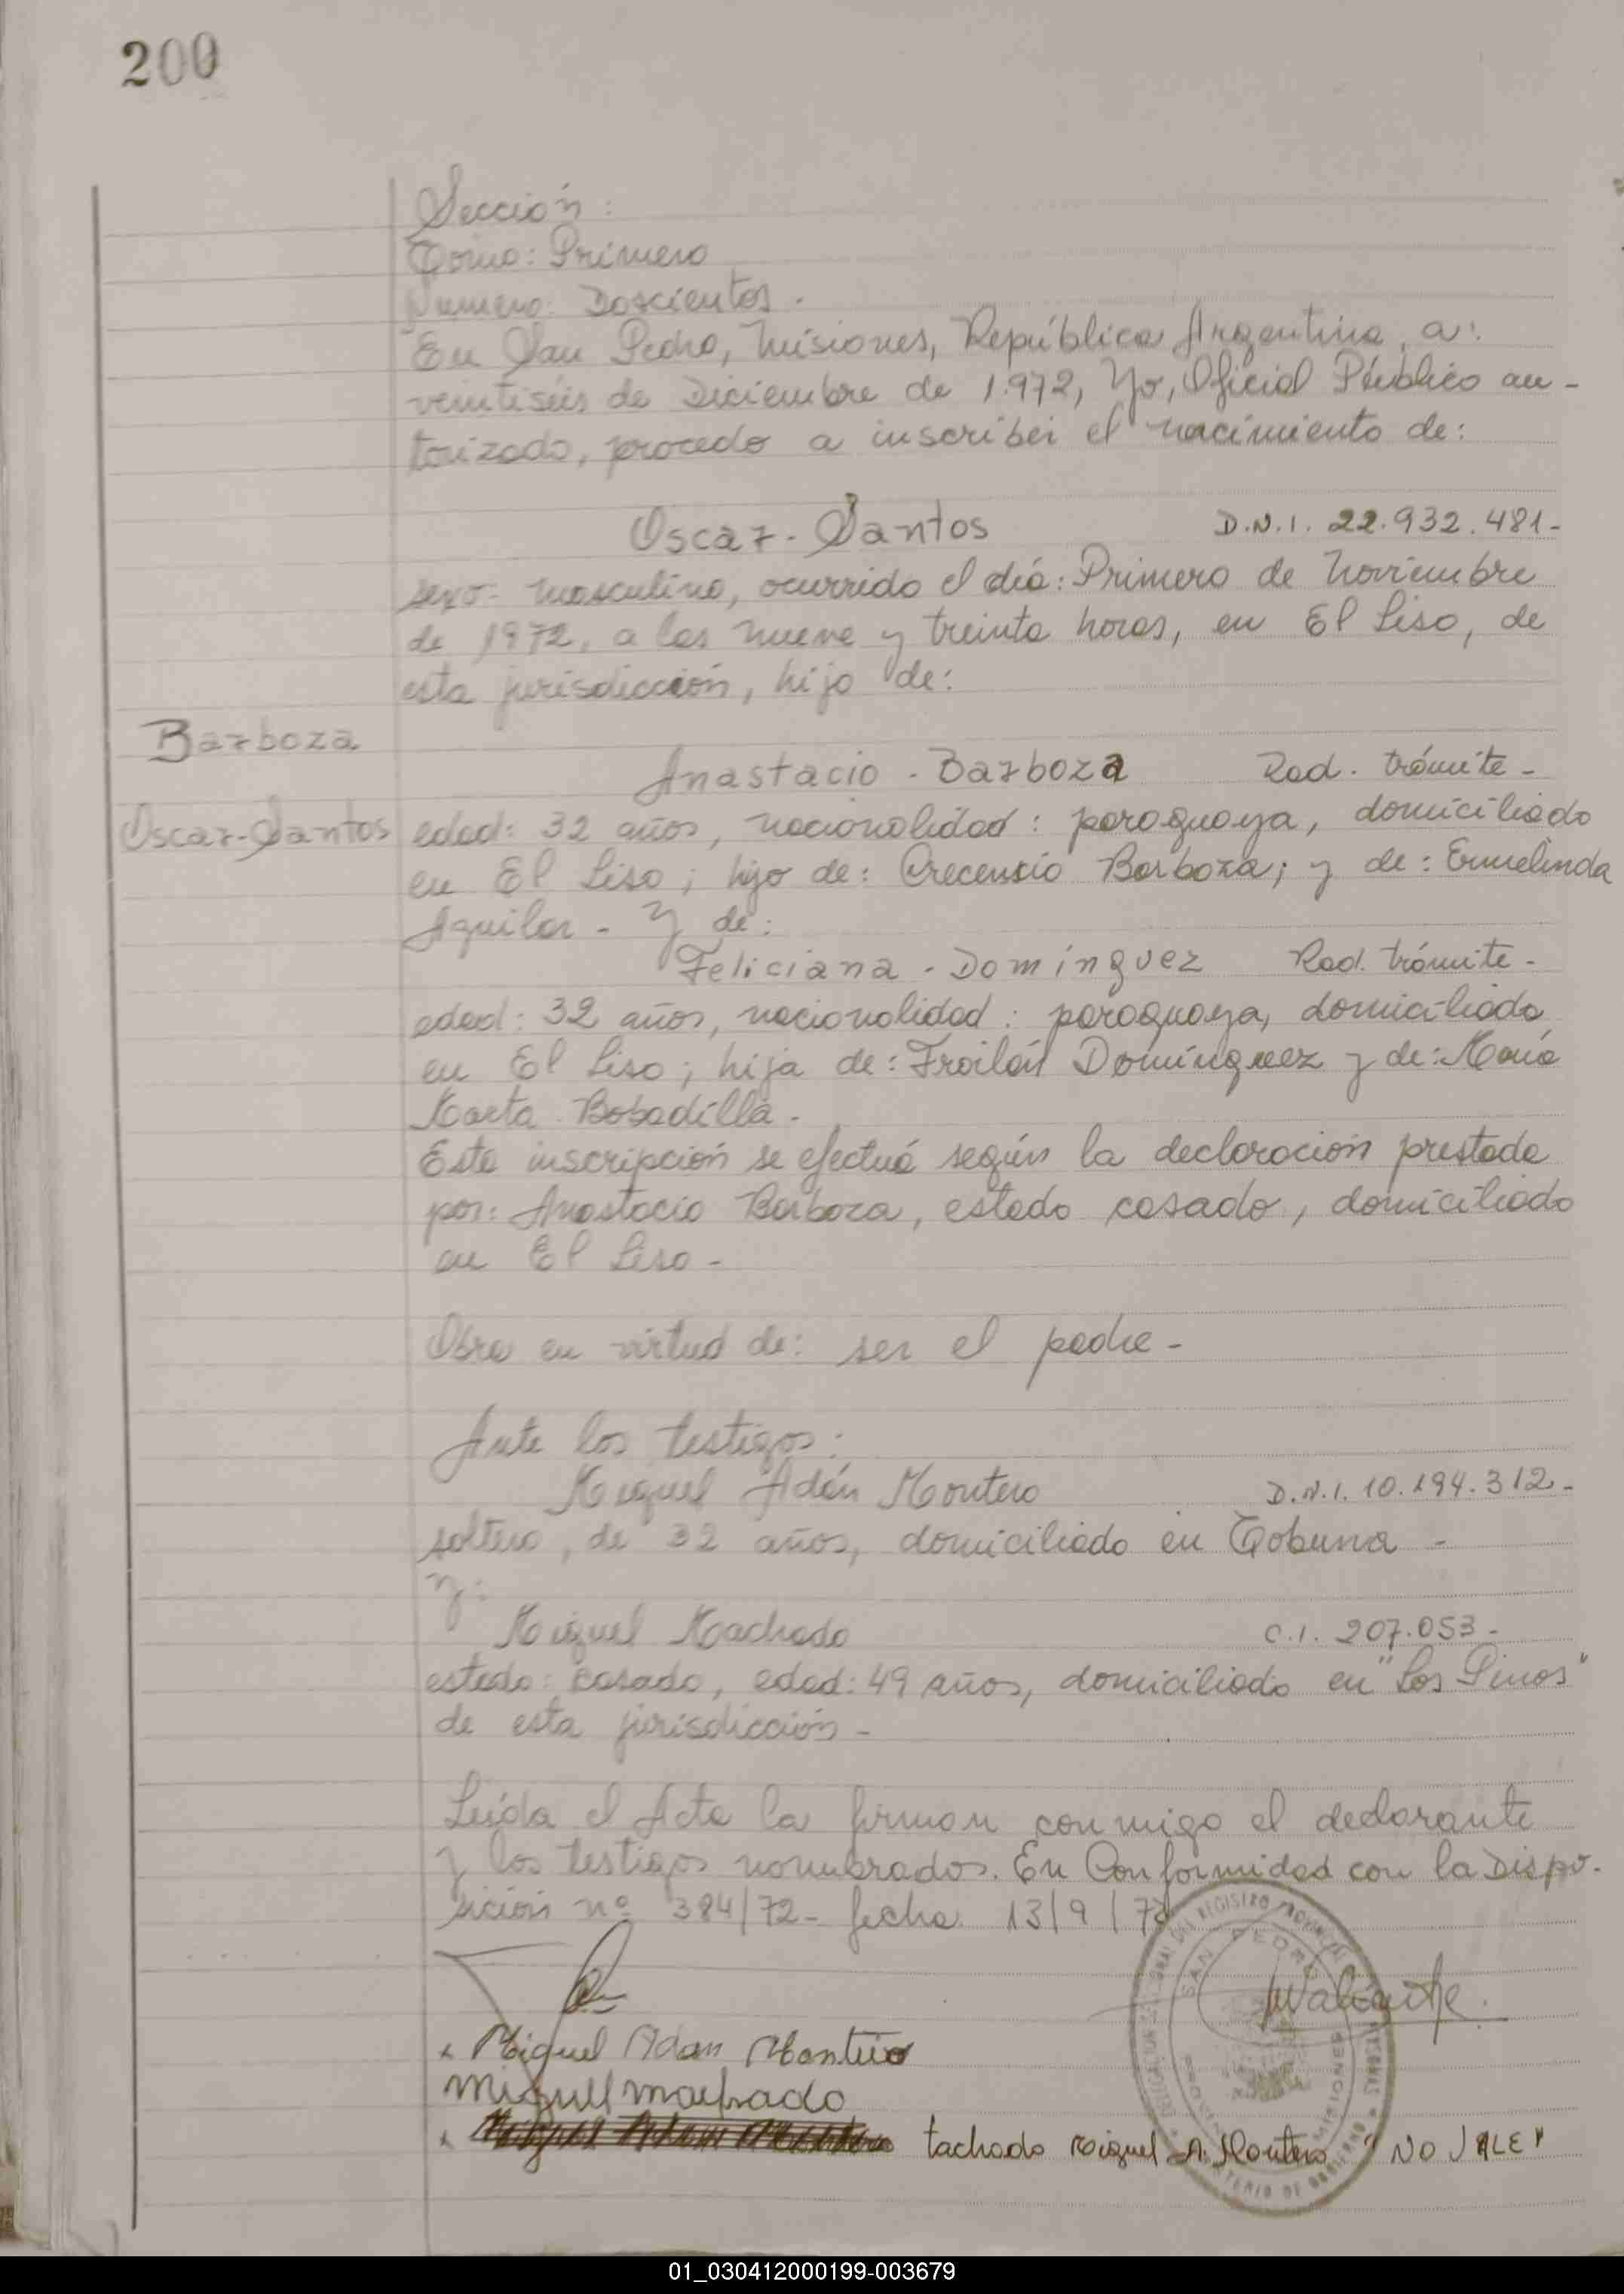 200
Sección:
Tomo: Primero
Numero: Doscientos.
En San Pedro, Misiones, República Argentina, a:
veintiséis de Diciembre de 1.972, Yo, Oficial Público au-
torizado, procedo a inscribir el nacimiento de:
Oscar-Santos D.N.I. 22.932.481-
sexo: masculino, ocurrido el día: Primero de Noviembre
de 1972, a las nueve y treinta horas, en El Liso, de
esta jurisdicción, hijo de:
Barboza
Anastacio - Barboza Rad. trámite -
Oscar-Santos
edad: 32 años, nacionalidad: paraguaya, domiciliado
en El Liso; hijo de: Crecencio Barboza; y de: Ermelinda
Aguilar - Y de:
Feliciana - Domínguez Rad. trámite -
edad: 32 años, nacionalidad: paraguaya, domiciliada
en El Liso; hija de: Froilán Domínguez y de: María
Marta Bobadilla -
Esta inscripción se efectuá según la declaración prestada
por: Anastacio Barboza, estado casado, domiciliado
en El Liso -
Obra en virtud de: ser el padre -
Ante los testigos:
Miguel Adán Montero D.N.I. 10.194.312.-
soltero, de 32 años, domiciliado en Tobuna -
y:
Miguel Machado C.I. 207.053-
estado: casado, edad: 49 años, domiciliado en "Los Pinos"
de esta jurisdicción -
Leída el Acta la firman conmigo el declarante
y los testigos nombrados. En Conformidad con la Dispo-
sición nº 384/72- fecha 13/9/72
Miguel Adan Montero
Miguel Machado
tachado Miguel A. Montero "NO VALE"
SAN PEDRO
01_030412000199-003679